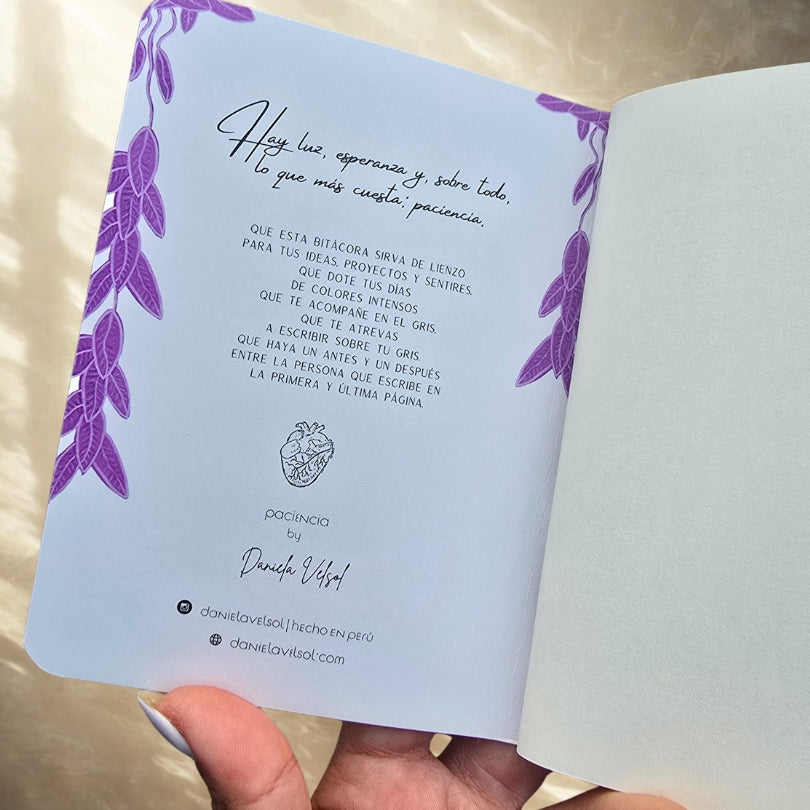 Hay luz, esperanza y, sobre todo,
lo que más cuesta: paciencia.
QUE ESTA BITÁCORA SIRVA DE LIENZO
PARA TUS IDEAS, PROYECTOS Y SENTIRES.
QUE DOTE TUS DÍAS
DE COLORES INTENSOS
QUE TE ACOMPAÑE EN EL GRIS.
QUE TE ATREVAS
A ESCRIBIR SOBRE TU GRIS.
QUE HAYA UN ANTES Y UN DESPUÉS
ENTRE LA PERSONA QUE ESCRIBE EN
LA PRIMERA Y ÚLTIMA PÁGINA.
paciencia
by
Daniela Velsol
danielavelsol | hecho en perú
danielavelsol.com